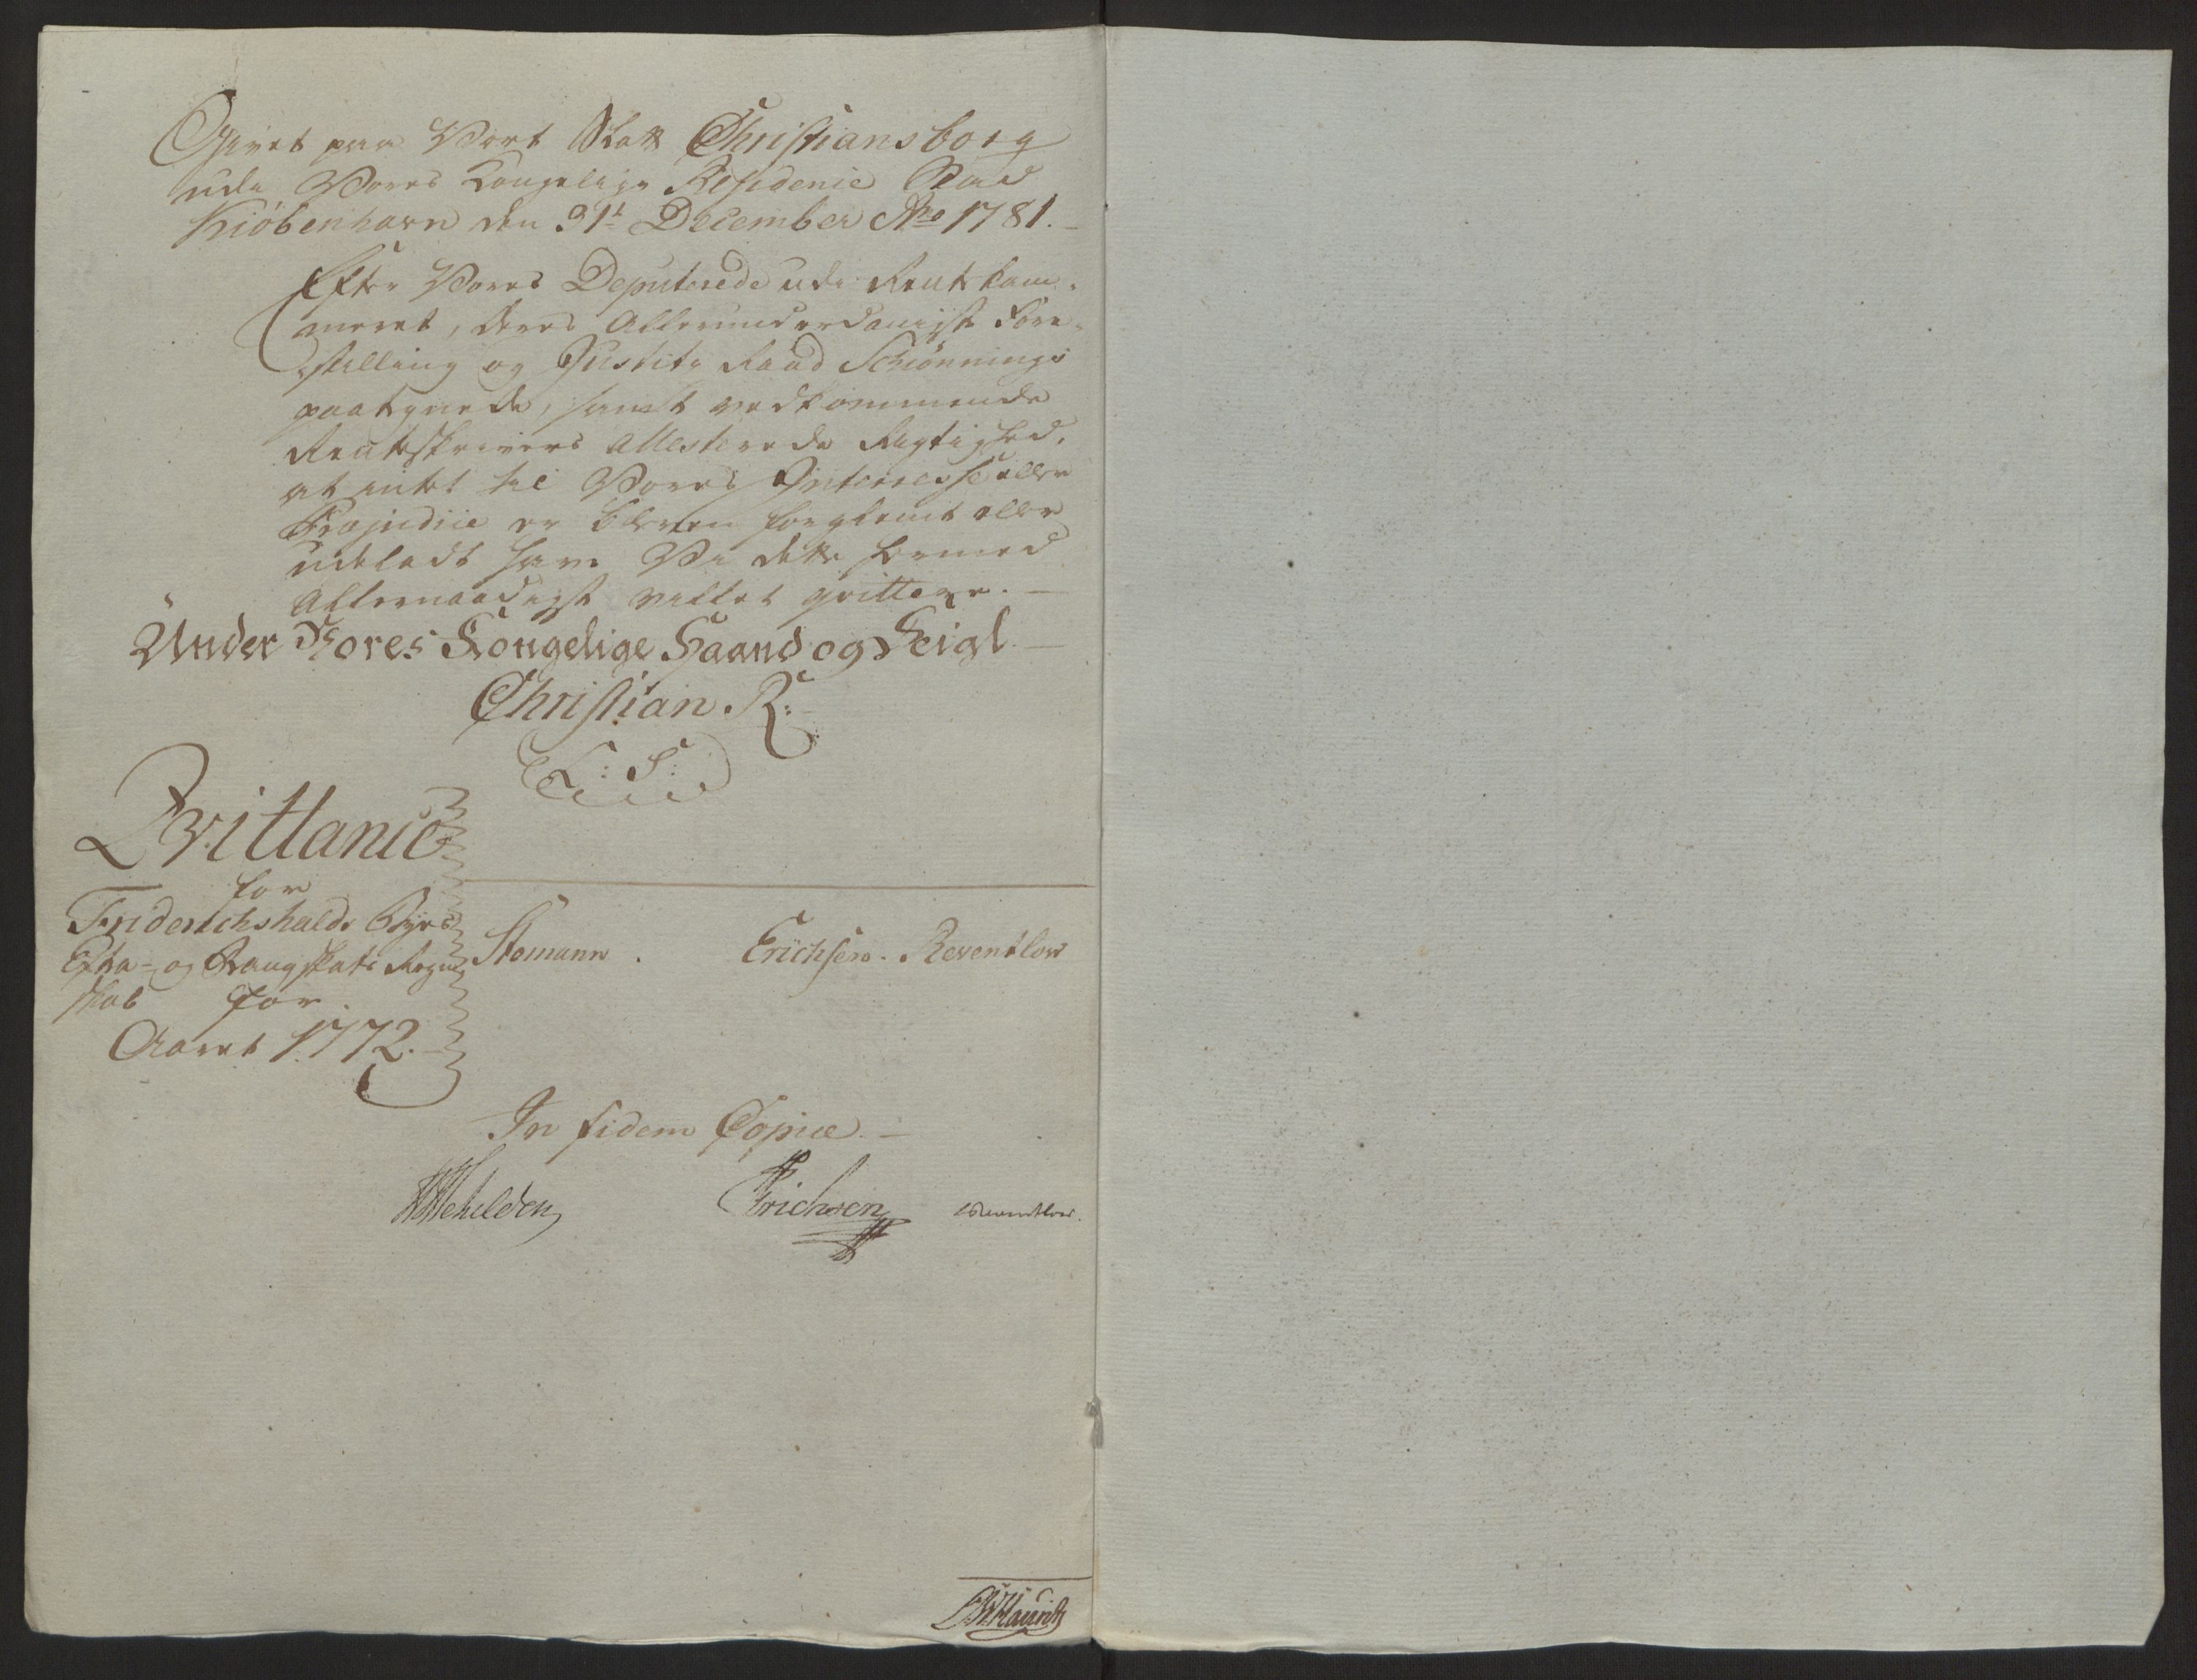 Givet paa Vort Slott Christiansborg
udi Vores Kongelige Residence Stad
Kiöbenhavn den 31t December Ao 1781.
Efter Vores Deputerede udi Rentekam-
meret, deres Allerunderdanigste Fore-
stilling og Justitz Raad Schiönnings
paategnede, samt vedkommende
Renteskrivers Attesterede Rigtighed,
at intet til Vores Interresse eller
Præjudice er bleven forglemt eller
udeladt have Vi dette hermed
Allernaadigst villet qvittere.
Under Vores Kongelige Haand og Seigl.
Christian R:
L: S:
Qvittance
for
Friderichshalds Byes
Extra- og Rangskats Regn
skab for
Aaret 1772.
Stemann. Erichsen. Reventlow
In fidem Copiæ.
Erichsen Reventlow.